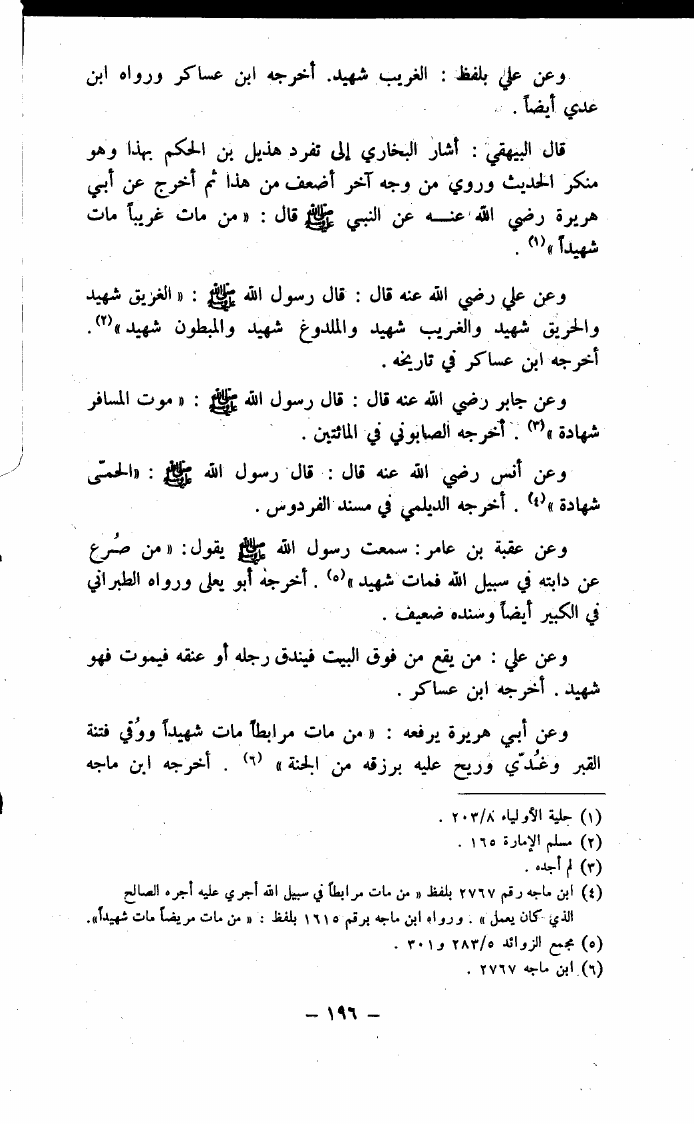 وعن علي بلفظ : الغريب شهيد. أخرجه ابن عساكر ورواه ابن
عدي أيضاً .
قال البيهقي : أشار البخاري إلى تفرد هذيل بن الحكم بهذا وهو
منكر الحديث وروي من وجه آخر أضعف من هذا ثم أخرج عن أبي
هريرة رضي الله عنـــه عن النبي ﷺ قال : « من مات غريباً مات
شهيداً »(١) .
وعن علي رضي الله عنه قال : قال رسول الله ﷺ : « الغريق شهيد
والحريق شهيد والغريب شهيد والملدوغ شهيد والمبطون شهيد »(٢).
أخرجه ابن عساكر في تاريخه .
وعن جابر رضي الله عنه قال : قال رسول الله ﷺ : « موت المسافر
شهادة »(٣) . أخرجه الصابوني في المائتين .
وعن أنس رضي الله عنه قال : قال رسول الله ﷺ : «الحمّى
شهادة »(٤) . أخرجه الديلمي في مسند الفردوس .
وعن عقبة بن عامر : سمعت رسول الله ﷺ يقول : « من صُرع
عن دابته في سبيل الله فمات شهيد »(٥) . أخرجه أبو يعلى ورواه الطبراني
في الكبير أيضاً وسنده ضعيف .
وعن علي : من يقع من فوق البيت فيندق رجله أو عنقه فيموت فهو
شهيد . أخرجه ابن عساكر .
وعن أبي هريرة يرفعه : « من مات مرابطاً مات شهيداً ووُقي فتنة
القبر وغُدّي وريح عليه برزقه من الجنة » (٦) . أخرجه ابن ماجه
(١) حلية الأولياء ٢٠٣/٨ .
(٢) مسلم الإمارة ١٦٥ .
(٣) لم أجده .
(٤) ابن ماجه رقم ٢٧٦٧ بلفظ « من مات مرابطاً في سبيل الله أجري عليه أجره الصالح
الذي كان يعمل » . ورواه ابن ماجه برقم ١٦١٥ بلفظ : « من مات مريضاً مات شهيداً».
(٥) مجمع الزوائد ٢٨٣/٥ و٣٠١ .
(٦) ابن ماجه ٢٧٦٧ .
– ١٩٦ –